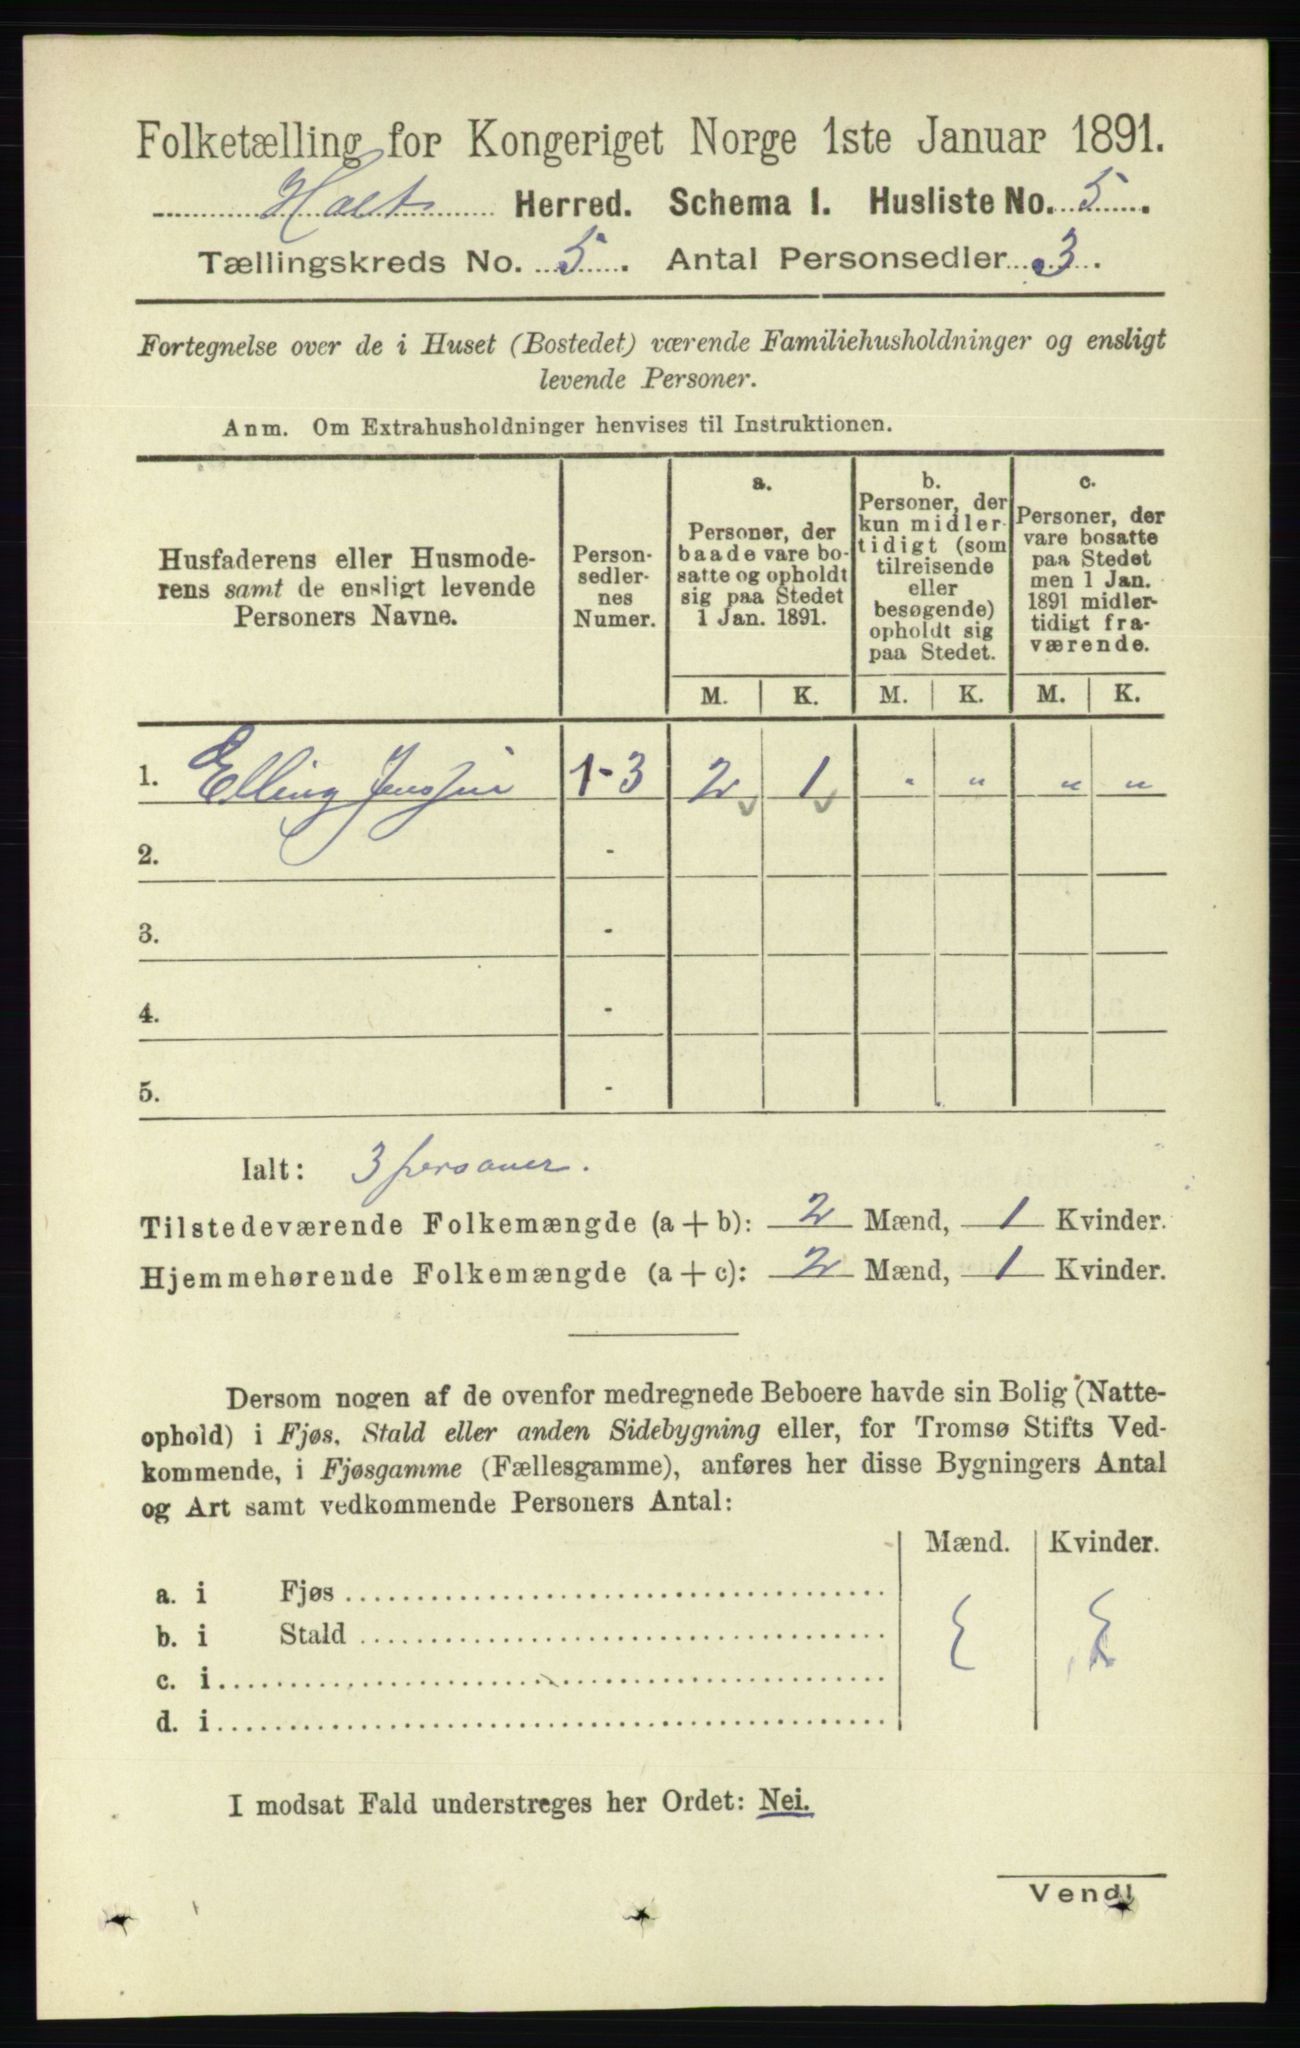 Folketælling for Kongeriget Norge 1ste Januar 1891.
Holt Herred. Schema 1. Husliste No. 5.
Tællingskreds No. 5. Antal Personsedler 3.
Fortegnelse over de i Huset (Bostedet) værende Familiehusholdninger og ensligt
levende Personer.
Anm. Om Extrahusholdninger henvises til Instruktionen.
Husfaderens eller Husmode-
rens samt de ensligt levende
Personers Navne.
Person-
sedler-
nes
Numer.
a.
Personer, der
baade vare bo-
satte og opholdt
sig paa Stedet
1 Jan. 1891.
b.
Personer, der
kun midler-
tidigt (som
tilreisende
eller
besøgende)
opholdt sig
paa Stedet.
c.
Personer, der
vare bosatte
paa Stedet
men 1 Jan.
1891 midler-
tidigt fra-
værende.
M. K. M. K. M. K.
1. Elling Jenssen 1-3 2 1 " " " "
2. -
3. -
4. -
5. -
Ialt: 3 personer.
Tilstedeværende Folkemængde (a + b): 2 Mænd, 1 Kvinder.
Hjemmehørende Folkemængde (a + c): 2 Mænd, 1 Kvinder.
Dersom nogen af de ovenfor medregnede Beboere havde sin Bolig (Natte-
ophold) i Fjøs, Stald eller anden Sidebygning eller, for Tromsø Stifts Ved-
kommende, i Fjøsgamme (Fællesgamme), anføres her disse Bygningers Antal
og Art samt vedkommende Personers Antal:
Mænd. Kvinder.
a. i Fjøs
b. i Stald
c. i
d. i
I modsat Fald understreges her Ordet: Nei.
Vend!